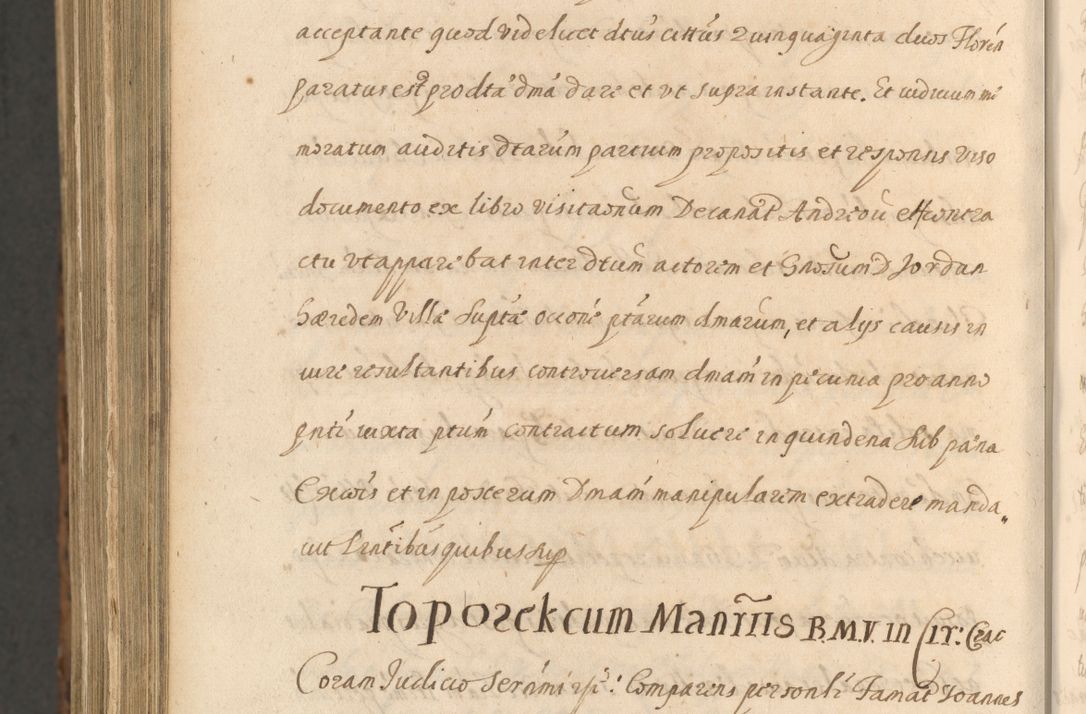 acceptante quod videlicet dtus cittus Quinquaginta duos Floren
paratus est pro dta dma dare et vt supra instante. Et iudicium me
moratum auditis dtarum partium propositis et responsis viso
documento ex libro visitaonum Decanat Andreou et contra
ctu vt apparebat inter dtum actorem et Gnosum D Jordan
Hæredem Villæ suptæ occone ptarum dmarum, et alys causis in
iure resultantibus controversam dmam in pecunia pro anno
pnti iuxta ptum contractum solvere in quindena sub pæna
Excois et in poxerum Dmam manipularem extradere manda„
uit Pntibus quibus sup
Toporek cum Manrīīs B.M.V. in Cir: Crac
Coram Judicio Serimi rsi: Comparens personlr Famat Joannes